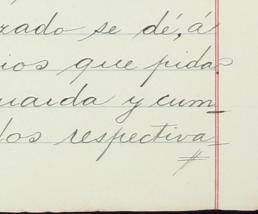 rado se dé, á
ios que pida
uarda y cum_
dos respectiva_